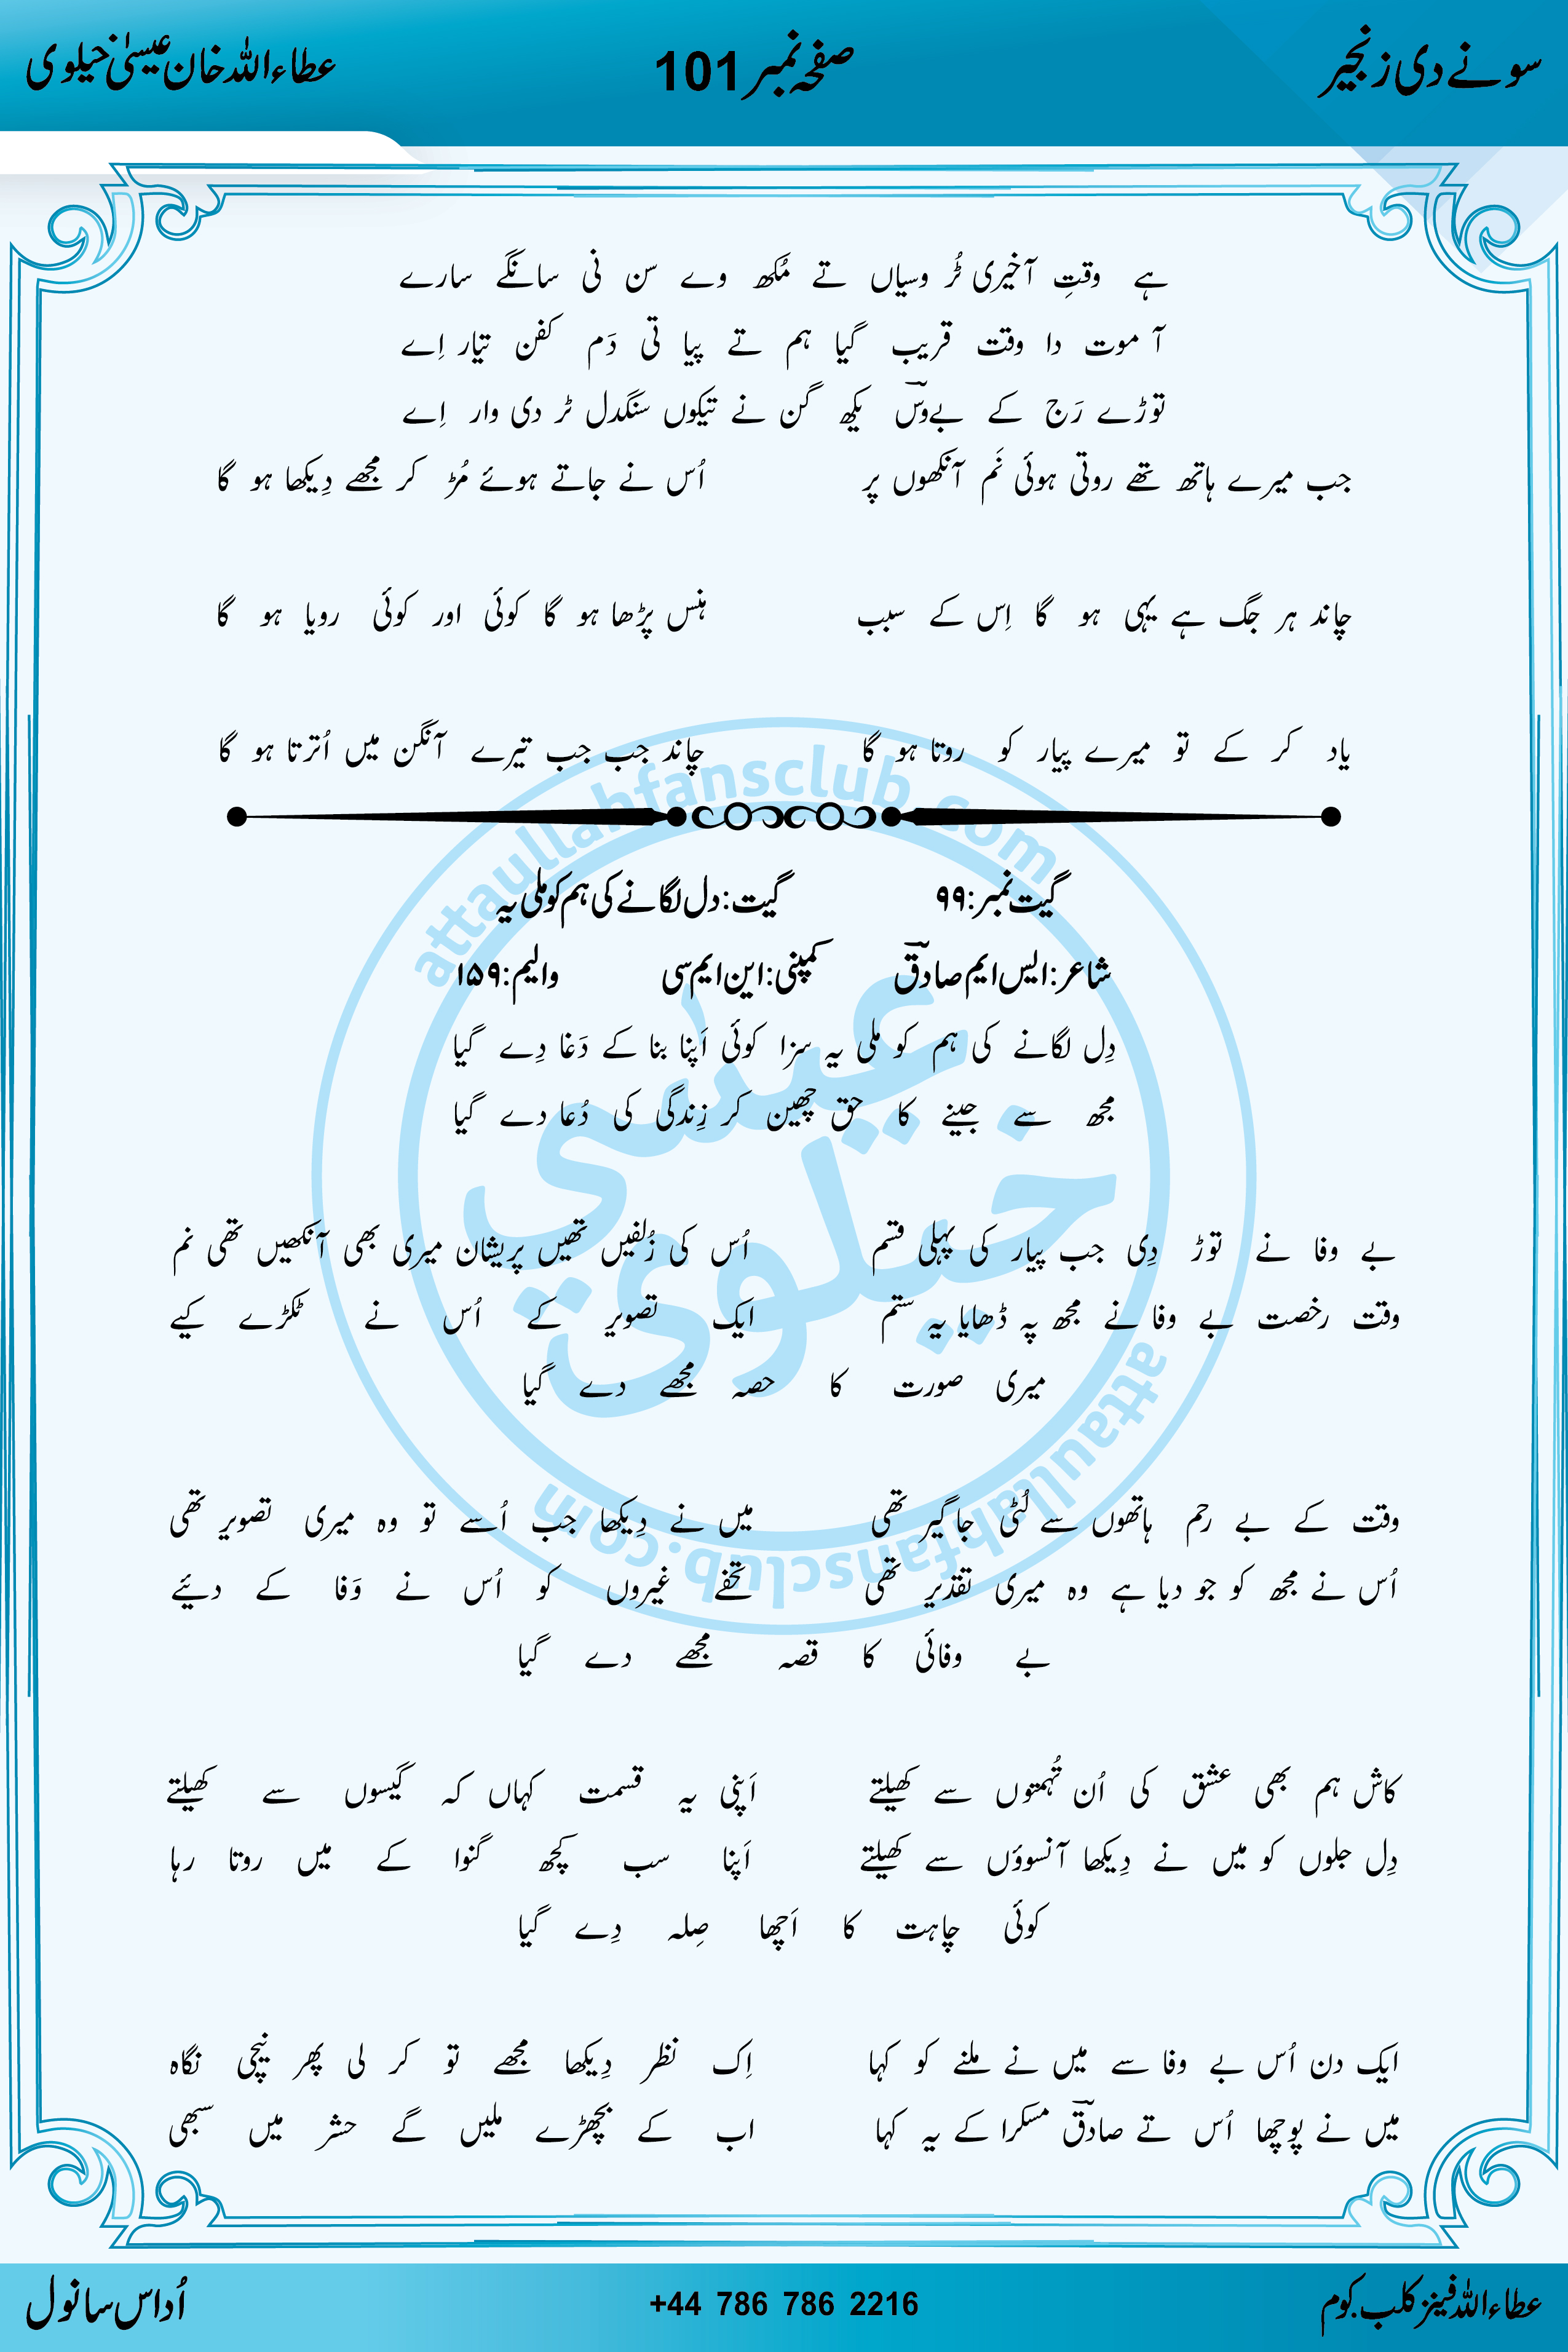 سونے دی زنجیر صفحہ نمبر 101 عطاءاللہ خان عیسیٰ خیلوی
ہے وقتِ آخیری ٹُر وسیاں تے مُکھ وے سن نی سانگے سارے
آ موت دا وقت قریب گیا ہم تے پیا تی دَم کفن تیار اِے
توڑے رَج کے بےوسؔ یکھ گن نے تیکوں سنگدل ٹر دی وار اِے
جب میرے ہاتھ تھے روتی ہوئی نَم آنکھوں پر اُس نے جاتے ہوئے مُڑ کر مجھے دِیکھا ہو گا
چاند ہر جگ ہے یہی ہو گا اِس کے سبب ہنس پڑھا ہو گا کوئی اور کوئی رویا ہو گا
یاد کر کے تو میرے پیار کو روتا ہو گا چاند جب جب تیرے آنگن میں اُترتا ہو گا
گیت نمبر:۹۹ گیت: دل لگانے کی ہم کو ملی یہ
شاعر: ایس ایم صادقؔ کمپنی: این ایم سی والیم:۱۵۹
دِل لگانے کی ہم کو ملی یہ سزا کوئی اَپنا بنا کے دَغا دِے گیا
مجھ سے جینے کا حق چھین کر زِندگی کی دُعا دے گیا
بے وفا نے توڑ دِی جب پیار کی پہلی قسم اُس کی زُلفیں تھیں پریشان میری بھی آنکھیں تھی نم
وقت رخصت بے وفا نے مجھ پہ ڈھایا یہ ستم ایک تصویر کے اُس نے ٹکڑے کیے
میری صورت کا حصہ مجھے دے گیا
وقت کے بے رحم ہاتھوں سے لُٹی جاگیر تھی میں نے دِیکھا جب اُسے تو وہ میری تصویر تھی
اُس نے مجھ کو جو دیا ہے وہ میری تقدیر تھی تحفے غیروں کو اُس نے وَفا کے دئیے
بے وفائی کا قصہ مجھے دے گیا
کاش ہم بھی عشق کی اُن تُہمتوں سے کھیلتے اَپنی یہ قسمت کہاں کہ گیسوں سے کھیلتے
دِل جلوں کو میں نے دِیکھا آنسوؤں سے کھیلتے اَپنا سب کچھ گنوا کے میں روتا رہا
کوئی چاہت کا اَچھا صِلہ دِے گیا
ایک دن اُس بے وفا سے میں نے ملنے کو کہا اِک نظر دِیکھا مجھے تو کر لی پھر نیچی نگاہ
میں نے پوچھا اُس تے صادقؔ مسکرا کے یہ کہا اب کے بچھڑے ملیں گے حشر میں سبھی
عطاءاللہ فینز کلب.کوم +44 786 786 2216 اُداس سانول
attaullahfansclub.com
عیسی
خیلوی
attaullahfansclub.com